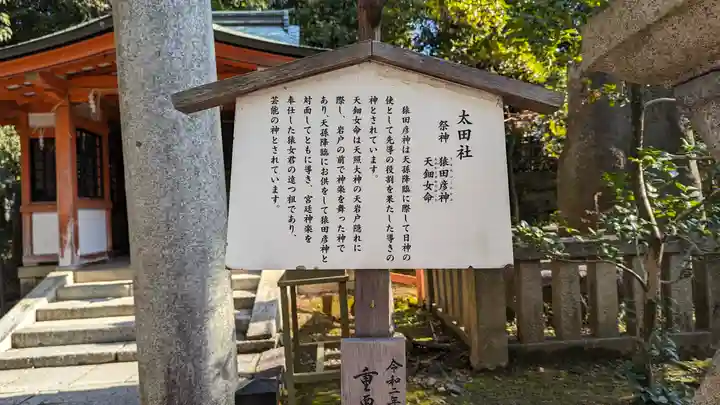 太田社
祭神　猿田彦神
天鈿女命
猿田彦神は天孫降臨に際して日神の
使として先導の役割を果たした導きの
神とされています。
天鈿女命は天照大神の天岩戸隠れに
際し、岩戸の前で神楽を舞った神で
あり、天孫降臨にお供をして猿田彦神と
対面してともに導き、宮廷神楽を
奉仕した猿女君の遠つ祖であり、
芸能の神とされています。
令和二年